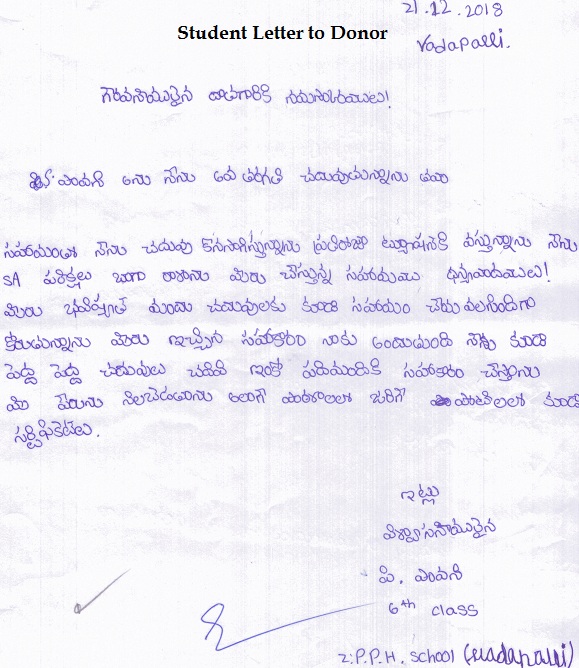 21.12.2018
Student Letter to Donor
Vadapalli.
గౌరవనీయులైన దాతగారికి నమస్కారములు!
వంశి అను నేను 6వ తరగతి చదువుచున్నాను తమ
సహాయంతో నేను చదువు కొనసాగిస్తున్నాను ప్రతిరోజూ ట్యూషన్‌కి వస్తున్నాను నేను
SA పరిక్షలు బాగా రాశాను మీరు చేస్తున్న సహాయము ధన్యవాదములు!
మీరు భవిష్యత్ ముందు చదువులకు కుడా సహాయం చేయ వలసిందిగా
కోరుచున్నాను మీరు ఇచ్చిన సహకారం నాకు అందుతుంది నేను కుడా
పెద్ద పెద్ద చదువులు చదివి ఇంకో పదిమందికి సహకారం చేస్తాను
మీ పేరును నిలబెడతాను అలాగే జరిగే పోటిలలో కుడా
సర్టిఫికెట్లు.
ఇట్లు
విశ్వాసనీయులైన
పి. వంశి
6th class
Z.P.P.H. School (Vadapalli)